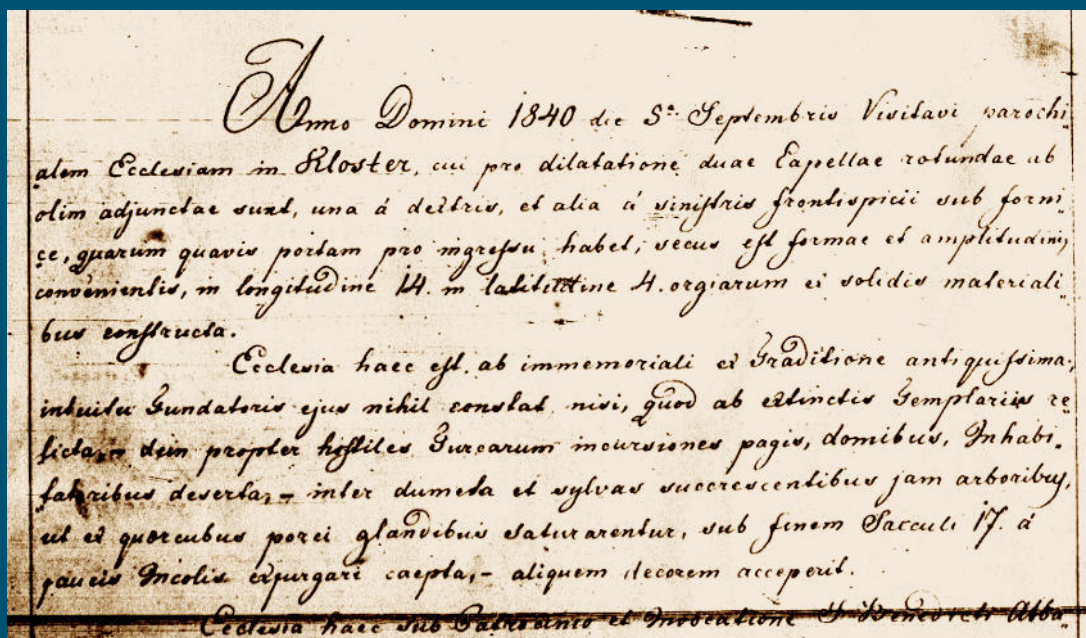 Anno Domini 1840 die 5ª Septembris Visitavi parochi
alem Ecclesiam in Kloster, cui pro dilatatione duae Capellae rotundae ab
olim adjunctae sunt, una á dextris, et alia á sinistris frontispicii sub forni
ce, quarum quavis portam pro ingressu habet, secus est formae et amplitudinis
convenientis, in longitudine 14. in latitudine 4. orgiarum ex solidis materiali
bus constructa.
Ecclesia haec est ab immemoriali ex Traditione antiquissima,
intuitu Fundatoris ejus nihil constat nisi, quod ab extinctis Templariis re
licta, – dein propter hostiles Turcarum incursiones pagis, domibus, Inhabi
tatoribus deserta, – inter dumeta et sylvas succrescentibus jam arboribus,
ut ex quercubus porci glandibus saturarentur, sub finem Saeculi 17. á
paucis Incolis expurgari caepta, – aliquem decorem acceperit.
Ecclesia haec sub Patrocinio et Invocatione S. Benedicti Abba